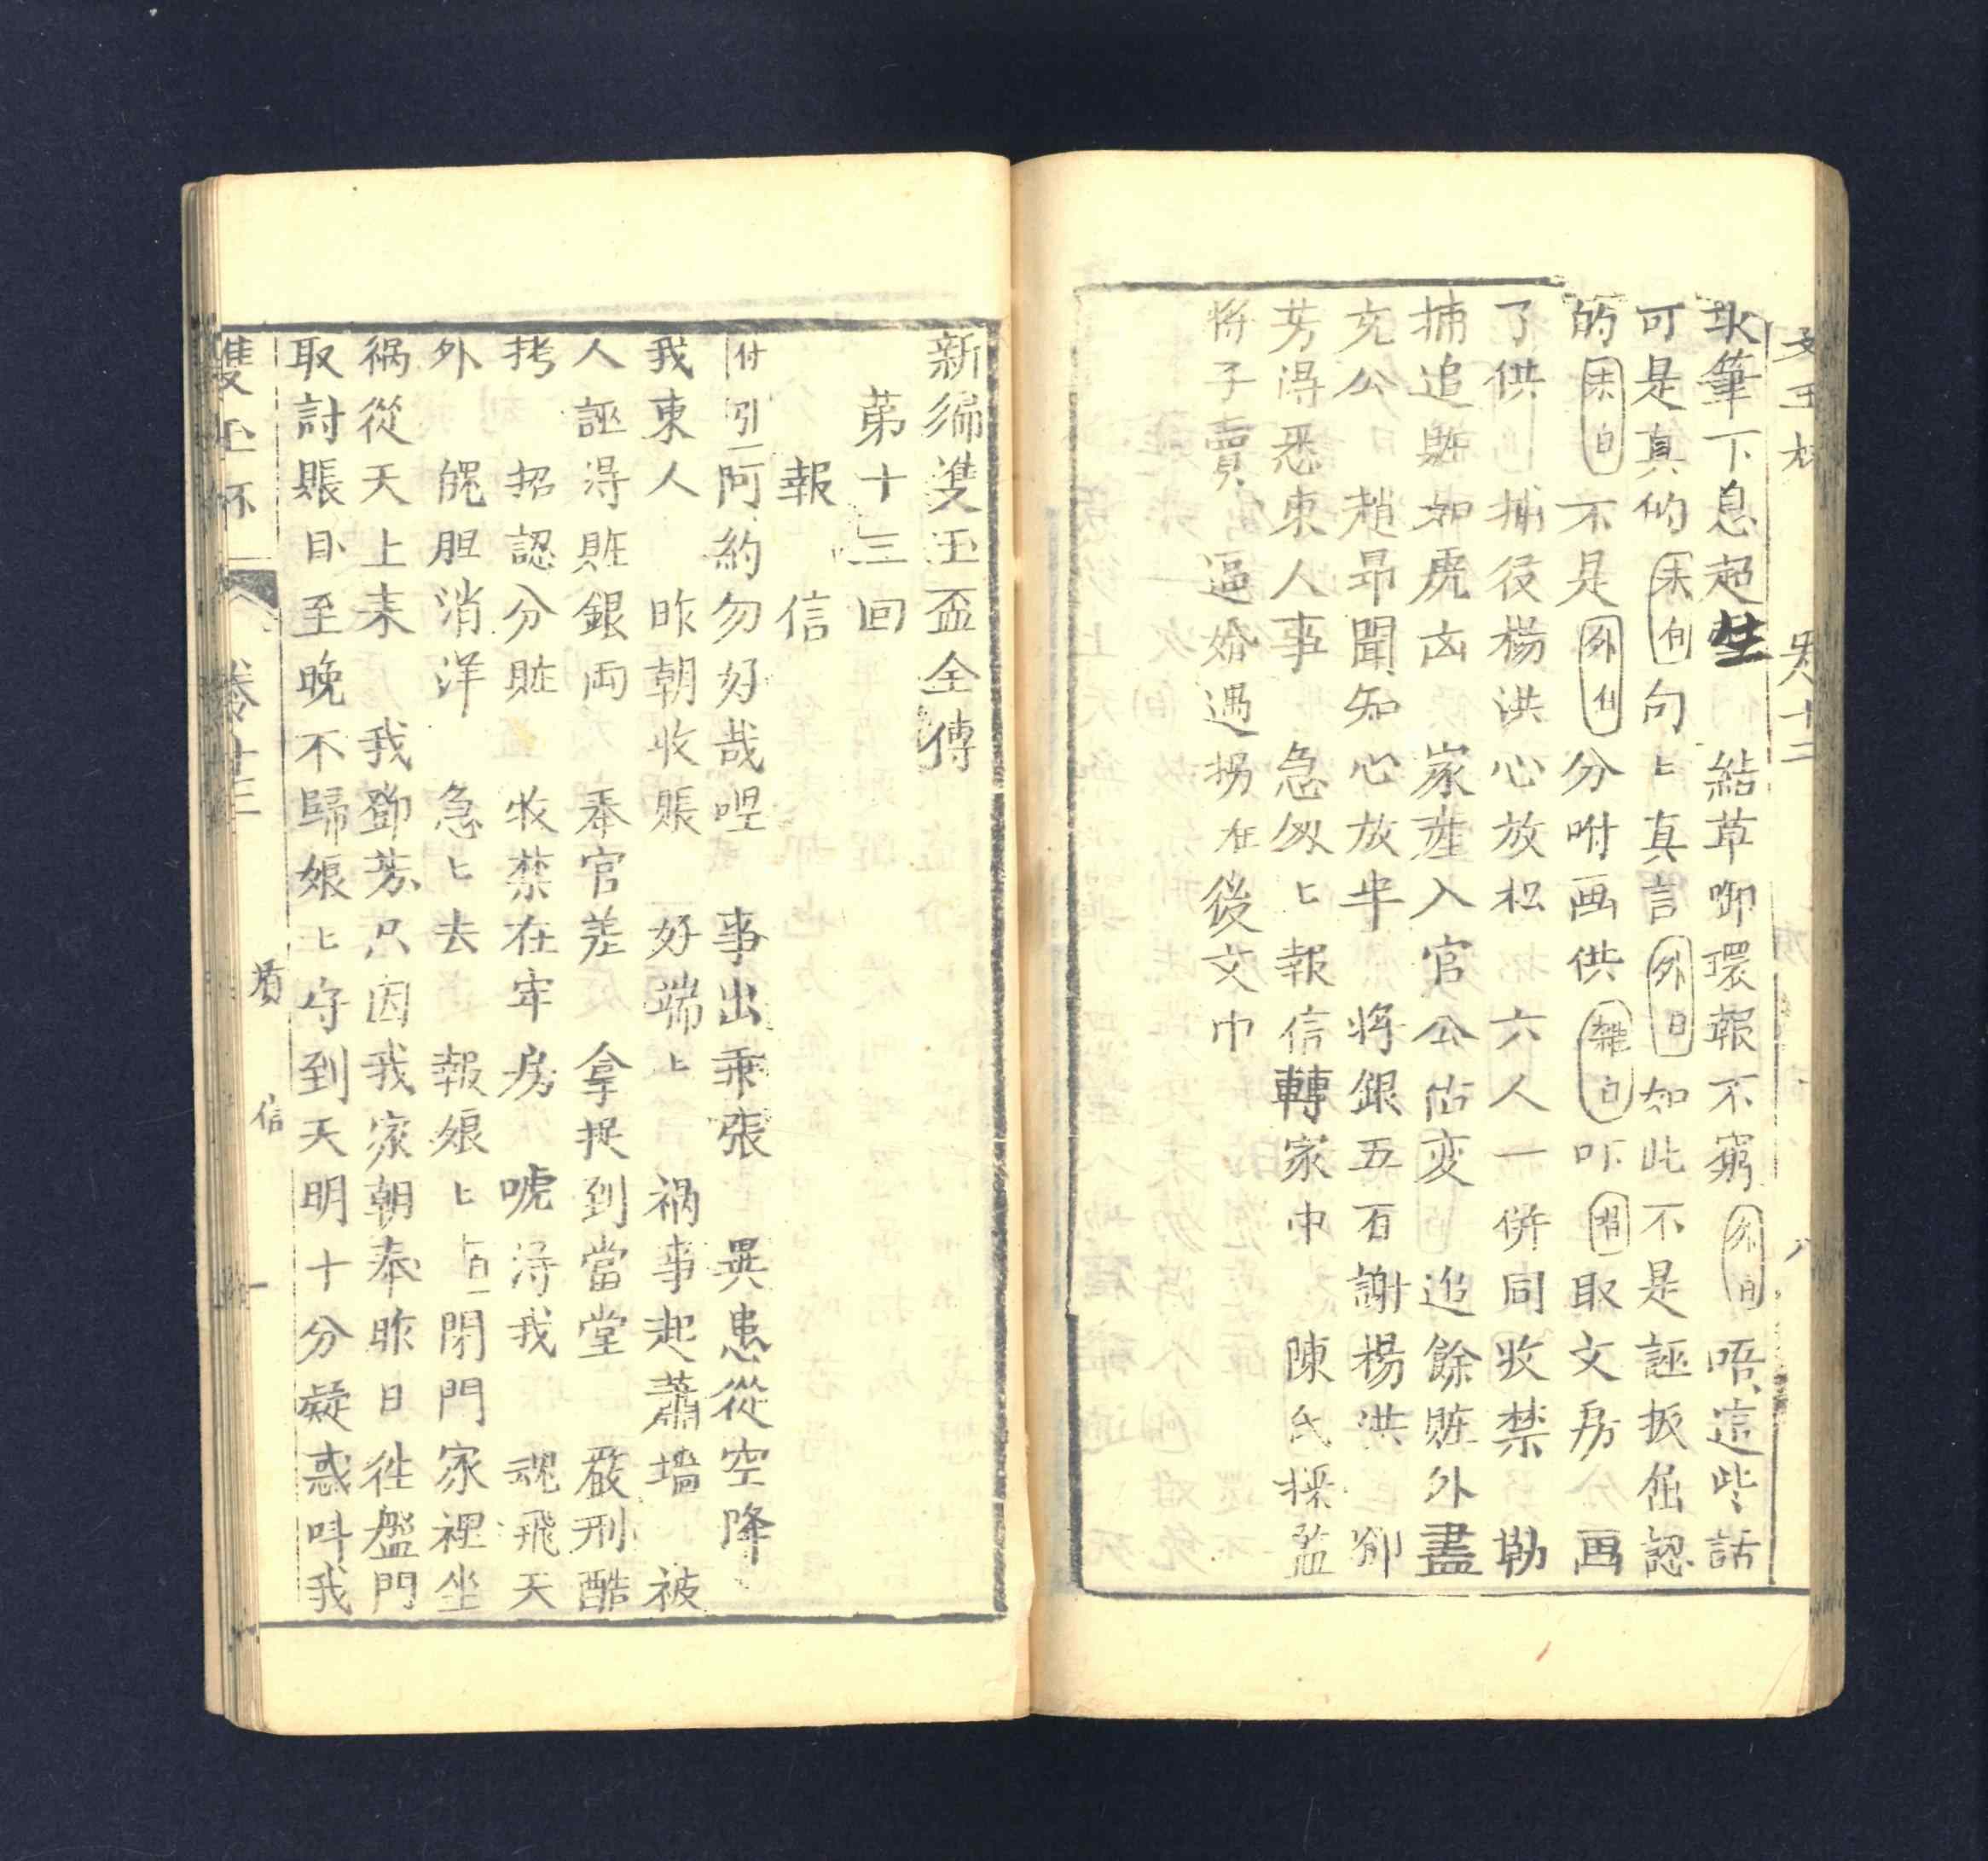 筆下息超生　結草啣環報不窮　外白　唔這些話
可是真的　末白　句匕真言　外白　如此不是誣扳屈認
的　末白　不是　外白　分咐画供　雜白　吓　取文房　画
了供　捕役楊洪心放松　六人一併同收禁　勒
捕追賍如虎凶　家產入官公估変　追餘賍外盡
充公　趙昻聞知心放半　將銀五百謝楊洪　鄧
芳淂悉東人事　急匆匕報信轉家中　陳氏探監
將子賣　逼婚遇拐在後文中
雙玉杯　卷十二　八
新编雙玉盃全傳
第十三回
報　信
付　引　阿約勿好哉哩　事出乘張　異患從空降
我東人　昨朝收賬　好端上　禍事起蕭墻　被
人誣淂賍銀両　奉官差　拿捉到當堂　嚴刑酷
拷　招認分賍　收禁在牢房　唬淂我　魂飛天
外　魄胆消洋　急匕去　報娘匕　白　閉門家裡坐
禍從天上来　我鄧芳只因我家朝奉昨日徃盤門
取討賬目至晚不歸娘上守到天明十分凝惑呌我
雙玉杯　卷十三　報　信　一